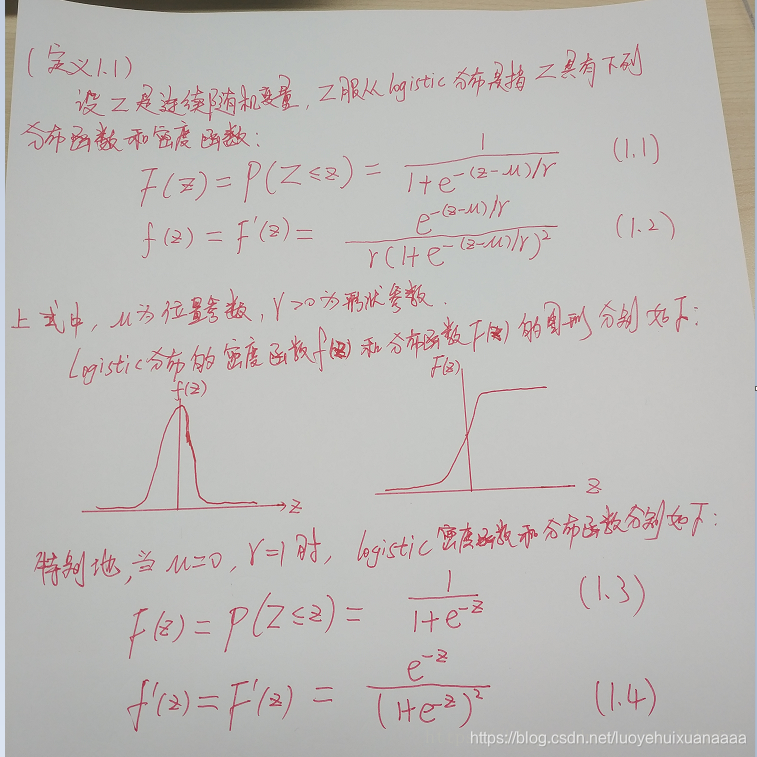 (定义1.1)
设Z是连续随机变量,Z服从logistic分布是指Z具有下列
分布函数和密度函数:
F(z) = P(Z≤z) = 1 / (1+e^{-(z-μ)/r}) (1.1)
f(z) = F'(z) = e^{-(z-μ)/r} / (r(1+e^{-(z-μ)/r})^2) (1.2)
上式中,μ为位置参数,r>0为形状参数.
Logistic分布的密度函数f(z)和分布函数F(z)的图形分别如下:
f(z) F(z)
z z
特别地,当μ=0,r=1时,logistic密度函数和分布函数分别如下:
F(z) = P(Z≤z) = 1 / (1+e^{-z}) (1.3)
f'(z) = F'(z) = e^{-z} / (1+e^{-z})^2 (1.4)
https://blog.csdn.net/luoyehuixuanaaaa